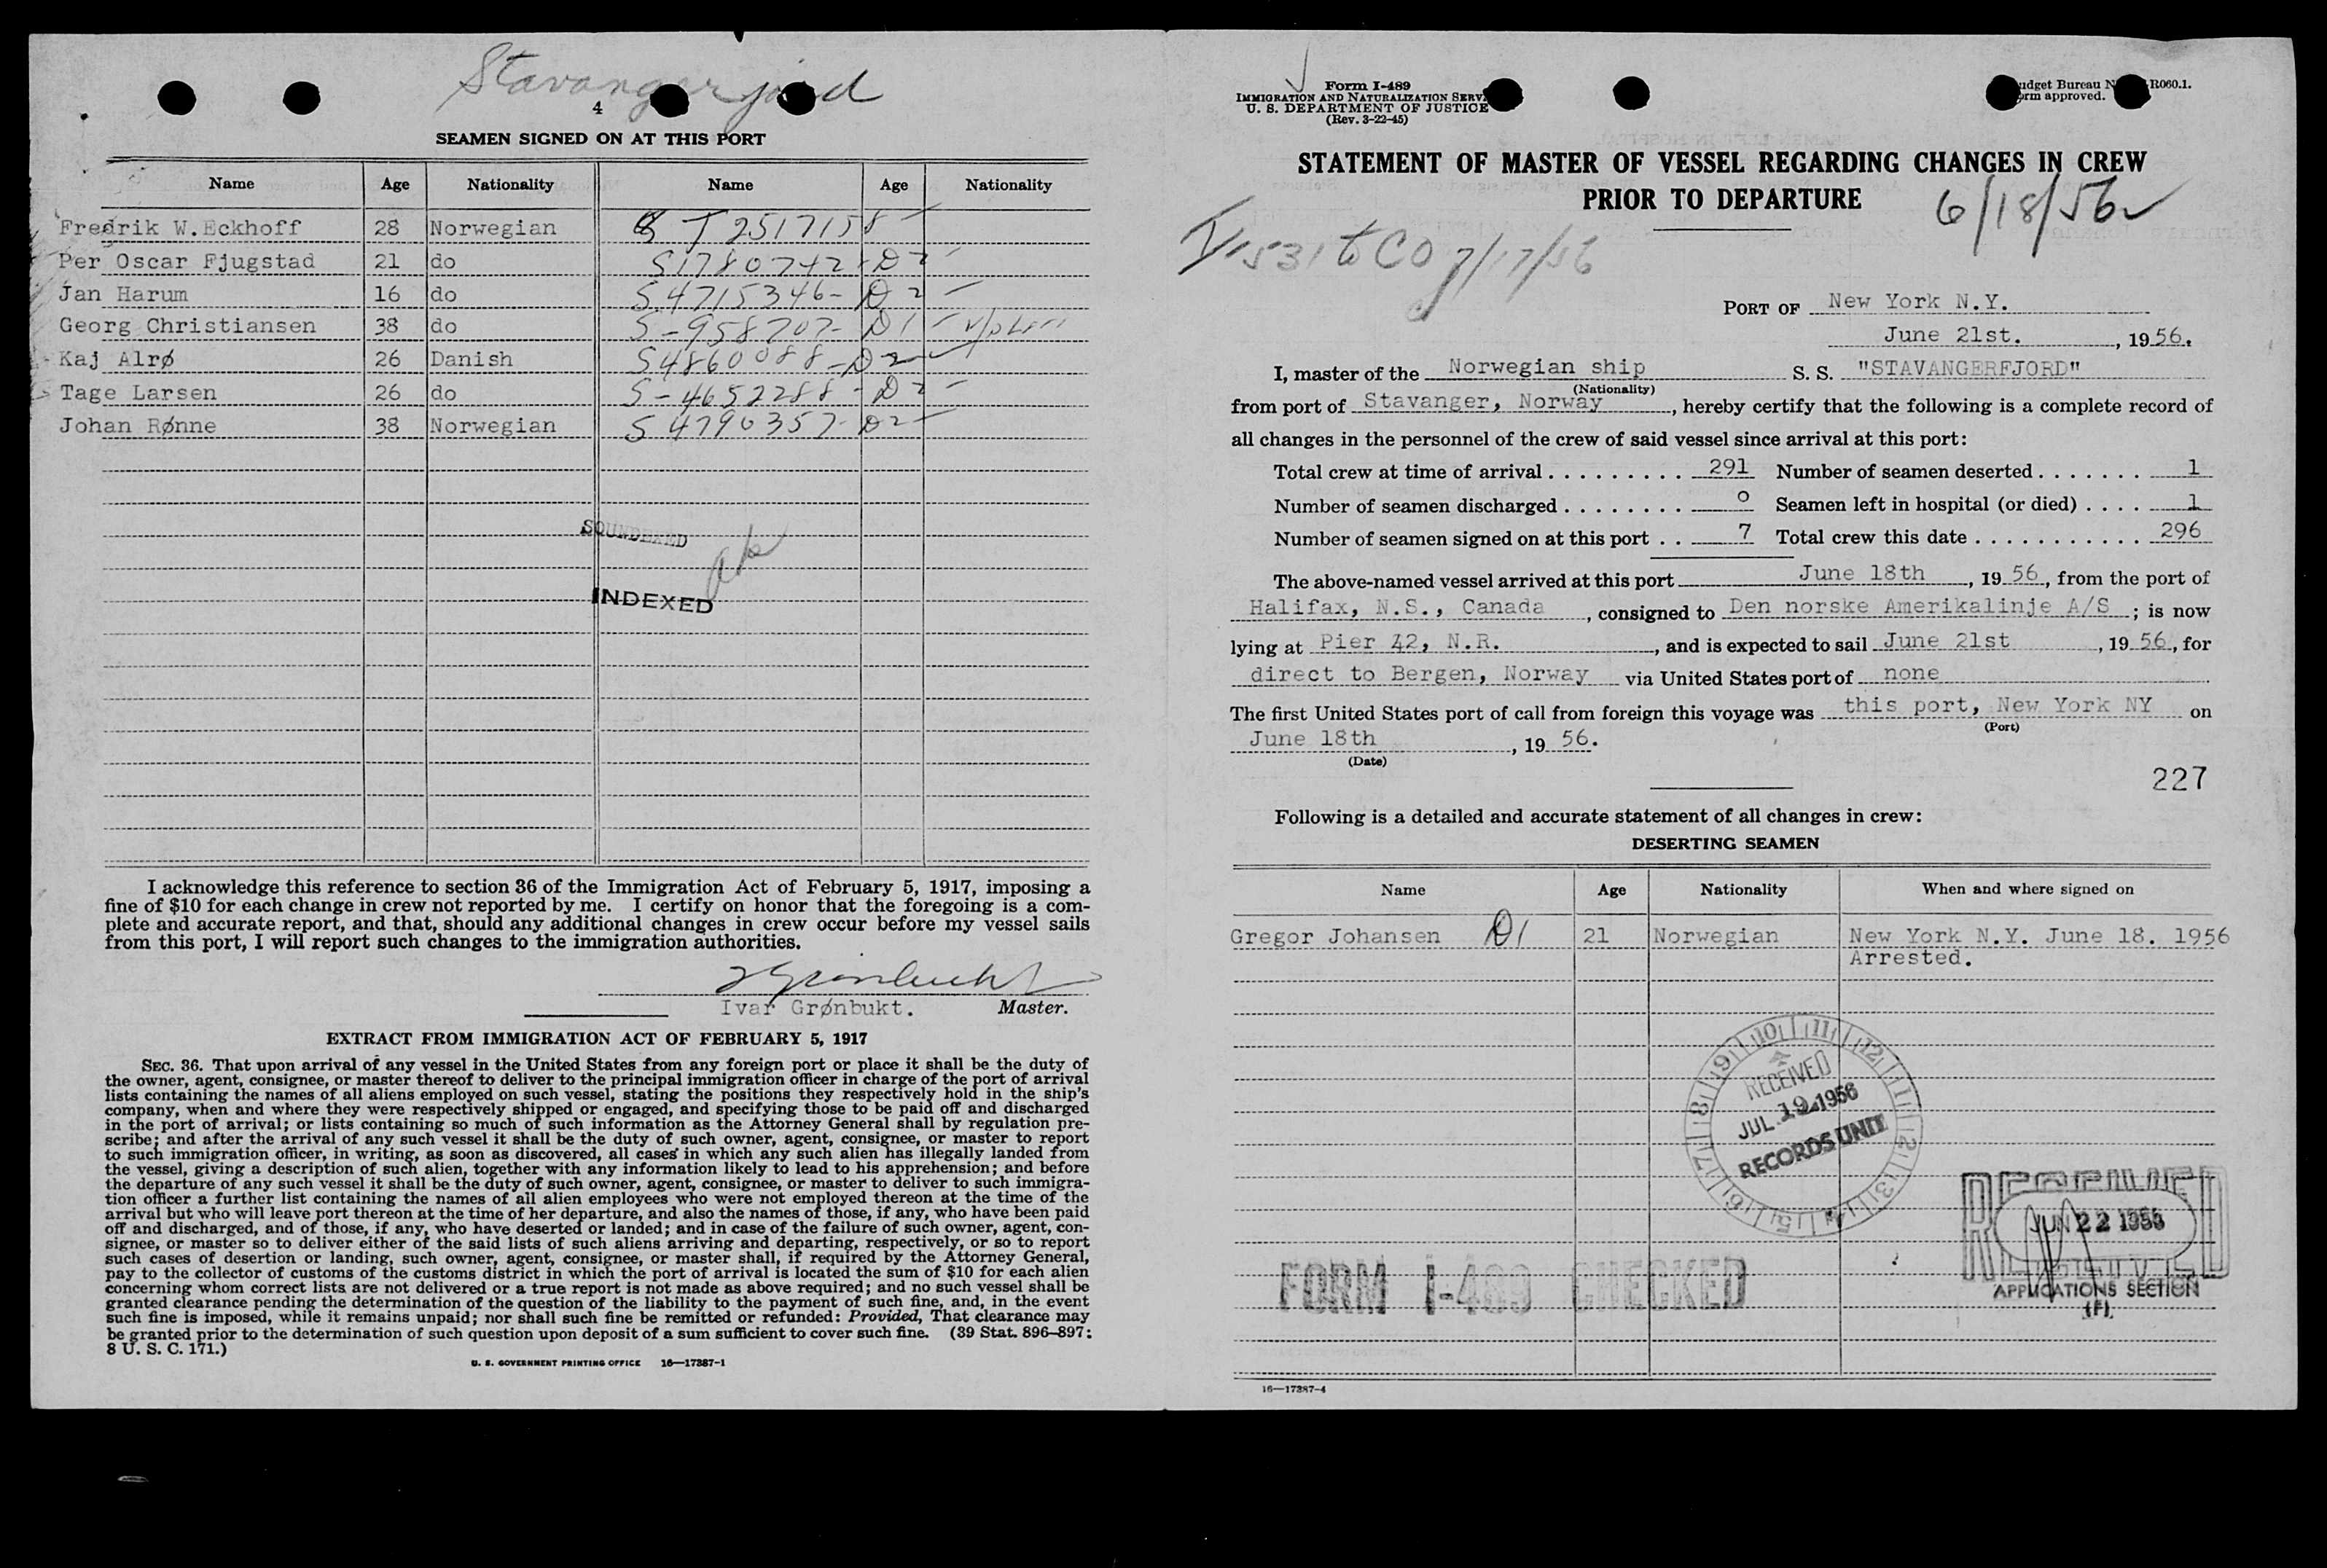 Stavangerfjord
4
SEAMEN SIGNED ON AT THIS PORT
Name Age Nationality Name Age Nationality
Fredrik W.Eckhoff 28 Norwegian T 2517158
Per Oscar Fjugstad 21 do S1780742 - D2
Jan Harum 16 do S 4715346 - D2
Georg Christiansen 38 do S-958707- D1
Kaj Alrø 26 Danish S4860088-D2
Tage Larsen 26 do S-4652288 - D2
Johan Rønne 38 Norwegian S 4790357- D2
SOUNDEXED
INDEXED
I acknowledge this reference to section 36 of the Immigration Act of February 5, 1917, imposing a
fine of $10 for each change in crew not reported by me. I certify on honor that the foregoing is a com-
plete and accurate report, and that, should any additional changes in crew occur before my vessel sails
from this port, I will report such changes to the immigration authorities.
Ivar Grønbukt. Master.
EXTRACT FROM IMMIGRATION ACT OF FEBRUARY 5, 1917
SEC. 36. That upon arrival of any vessel in the United States from any foreign port or place it shall be the duty of
the owner, agent, consignee, or master thereof to deliver to the principal immigration officer in charge of the port of arrival
lists containing the names of all aliens employed on such vessel, stating the positions they respectively hold in the ship's
company, when and where they were respectively shipped or engaged, and specifying those to be paid off and discharged
in the port of arrival; or lists containing so much of such information as the Attorney General shall by regulation pre-
scribe; and after the arrival of any such vessel it shall be the duty of such owner, agent, consignee, or master to report
to such immigration officer, in writing, as soon as discovered, all cases in which any such alien has illegally landed from
the vessel, giving a description of such alien, together with any information likely to lead to his apprehension; and before
the departure of any such vessel it shall be the duty of such owner, agent, consignee, or master to deliver to such immigra-
tion officer a further list containing the names of all alien employees who were not employed thereon at the time of the
arrival but who will leave port thereon at the time of her departure, and also the names of those, if any, who have been paid
off and discharged, and of those, if any, who have deserted or landed; and in case of the failure of such owner, agent, con-
signee, or master so to deliver either of the said lists of such aliens arriving and departing, respectively, or so to report
such cases of desertion or landing, such owner, agent, consignee, or master shall, if required by the Attorney General,
pay to the collector of customs of the customs district in which the port of arrival is located the sum of $10 for each alien
concerning whom correct lists are not delivered or a true report is not made as above required; and no such vessel shall be
granted clearance pending the determination of the question of the liability to the payment of such fine, and, in the event
such fine is imposed, while it remains unpaid; nor shall such fine be remitted or refunded: Provided, That clearance may
be granted prior to the determination of such question upon deposit of a sum sufficient to cover such fine. (39 Stat. 896–897;
8 U. S. C. 171.)
U. S. GOVERNMENT PRINTING OFFICE 16—17387-1
Form I-489
IMMIGRATION AND NATURALIZATION SERV
U. S. DEPARTMENT OF JUSTICE
(Rev. 3-22-45)
udget Bureau N R060.1.
rm approved.
STATEMENT OF MASTER OF VESSEL REGARDING CHANGES IN CREW
PRIOR TO DEPARTURE
6/18/56
I-531 to CO 7/17/56
PORT OF New York N.Y.
June 21st. , 1956.
I, master of the Norwegian ship S. S. "STAVANGERFJORD"
(Nationality)
from port of Stavanger, Norway , hereby certify that the following is a complete record of
all changes in the personnel of the crew of said vessel since arrival at this port:
Total crew at time of arrival . . . . . . . . . 291 Number of seamen deserted . . . . . . . 1
Number of seamen discharged . . . . . . . . 0 Seamen left in hospital (or died) . . . . 1
Number of seamen signed on at this port . . 7 Total crew this date . . . . . . . . . . . 296
The above-named vessel arrived at this port June 18th , 19 56, from the port of
Halifax, N.S., Canada , consigned to Den norske Amerikalinje A/S ; is now
lying at Pier 42, N.R. , and is expected to sail June 21st , 19 56, for
direct to Bergen, Norway via United States port of none
The first United States port of call from foreign this voyage was this port, New York NY on
(Port)
June 18th , 19 56.
(Date)
227
Following is a detailed and accurate statement of all changes in crew:
DESERTING SEAMEN
Name Age Nationality When and where signed on
Gregor Johansen D1 21 Norwegian New York N.Y. June 18. 1956
Arrested.
RECEIVED
JUL 19 1956
RECORDS UNIT
RECEIVED
JUN 22 1956
APPLICATIONS SECTION
FORM I-489 CHECKED
16—17387-4